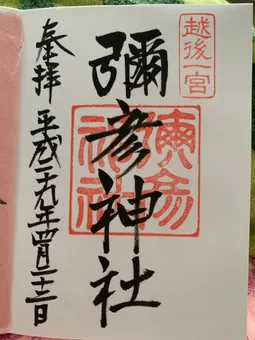 越後一宮
彌彦神社
彌彦神社
奉拝
平成二十九年四月二十二日